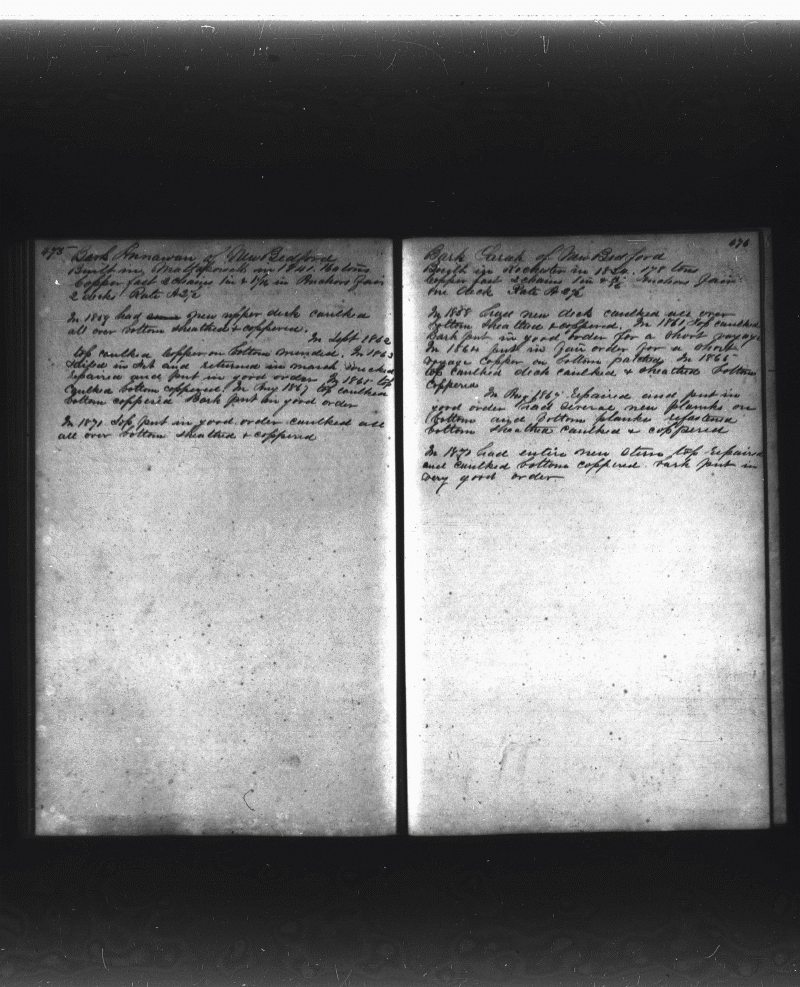 475 Bark Annawan of New Bedford
Built in Mattapoisett in 1841.
Copper fast 2 chains 1in & 1⅛ in Anchors Fair
2 decks Rate A 2½
In 1859 had new upper deck caulked
all over bottom sheathed & coppered.
In Sept 1862
top caulked Copper on bottom mended. In 1863
Sailed in Oct and returned in march
repaired and put in good order In 1865 top
caulked bottom coppered. In Aug 1867 top caulked
bottom coppered Bark put in good order
In 1871 Top put in good order caulked all
all over bottom sheathed & coppered
476
Bark Sarah of New Bedford
Built in Rochester in 178 tons
Copper fast 2 chains 1in & ⅞ Anchors Fair
one deck Rate A 2½
In 1858 had new deck caulked all over
bottom sheathed & coppered. In 1861 Top caulked
Bark put in good order for a short voyage
In 1864 put in fair order for a short
voyage copper on bottom patched In 1865
top caulked deck caulked & sheathed bottom
coppered
In Aug 1867 Repaired and put in
good order had several new planks on
bottom and bottom planks refastened
bottom sheathed caulked & coppered
In 1871 had entire new stern top repaired
and caulked bottom coppered. bark put in
very good order